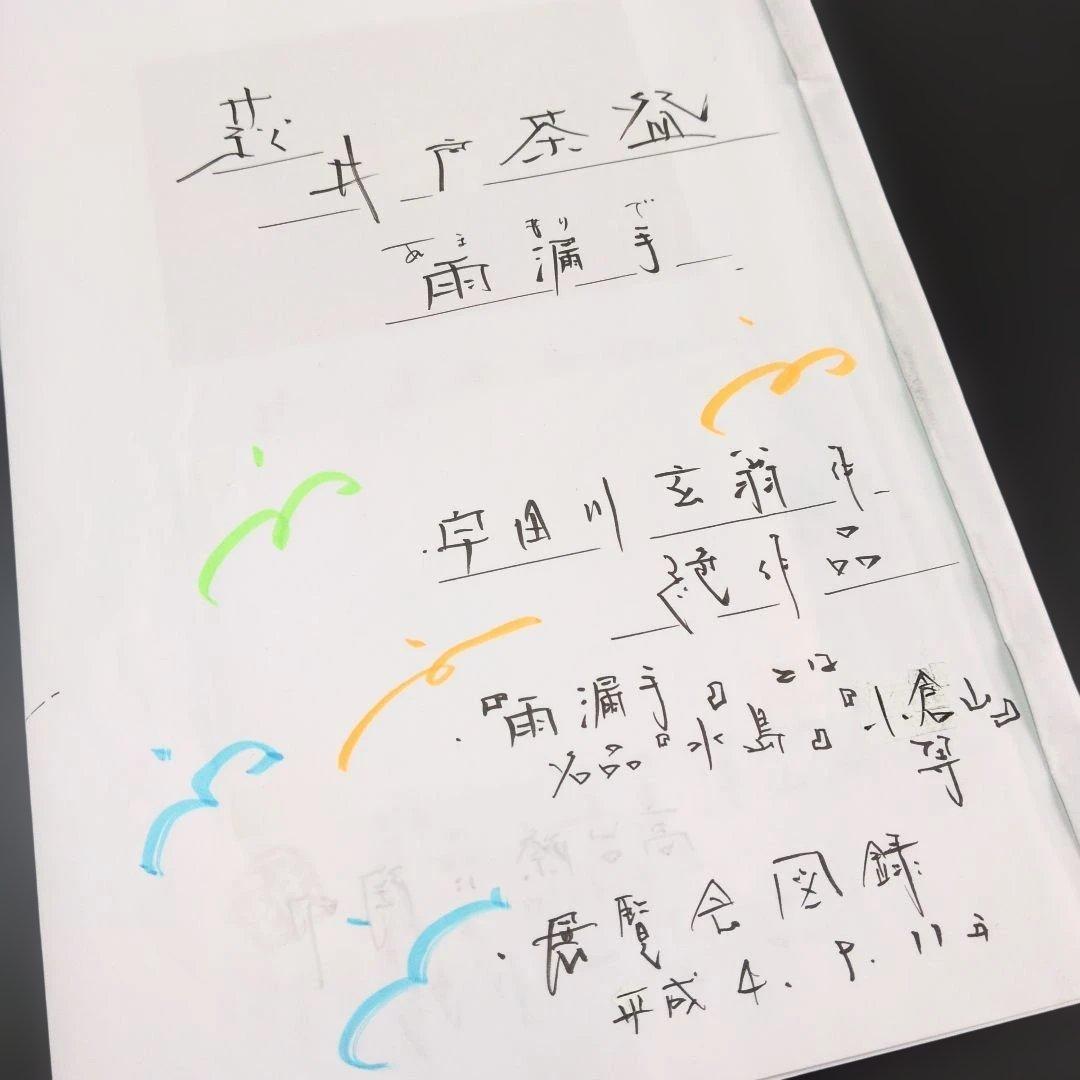 井戸茶盌
あま もり で
雨漏手
・宇田川玄翁作
陶作品
・『雨漏手』とは
名品『水島』『小倉山』
等
・展覧会図録
平成4.9.11